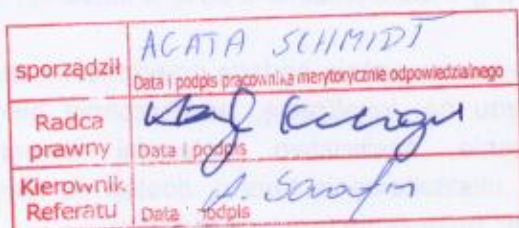 sporządził
AGATA SCHMIDT
Data i podpis pracownika merytorycznie odpowiedzialnego
Radca
prawny
Data i podpis
Kierownik
Referatu
A. Serafin
Data podpis